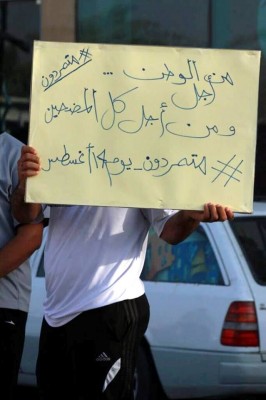 #متمردون
من أجل الوطن ...
ومن أجل كل المضحين
#متمردون_يوم 14 أغسطس
adidas